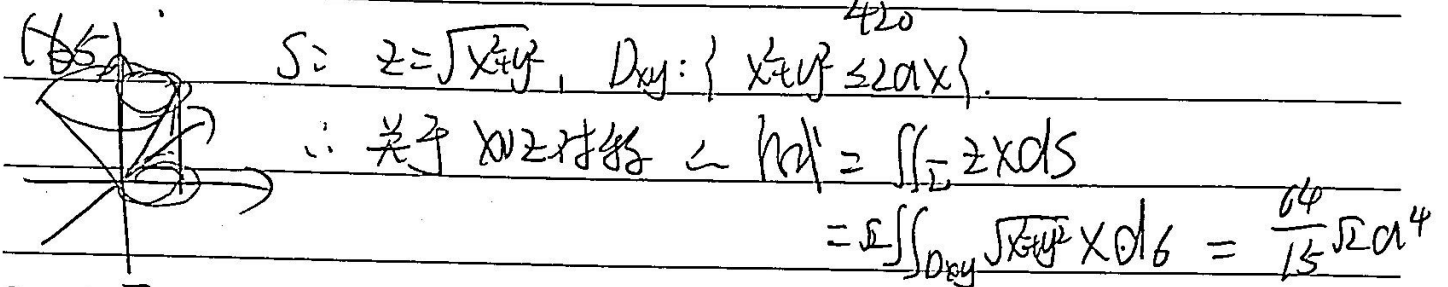 420
(165) S: z=√(x²+y²), Dxy:{ x²+y²≤2ax}.
∴ 关于 xoz对称 ∴ 原式 = ∬_Σ zxdS
= √2∬_Dxy √(x²+y²) xdσ = 64/15 √2a⁴